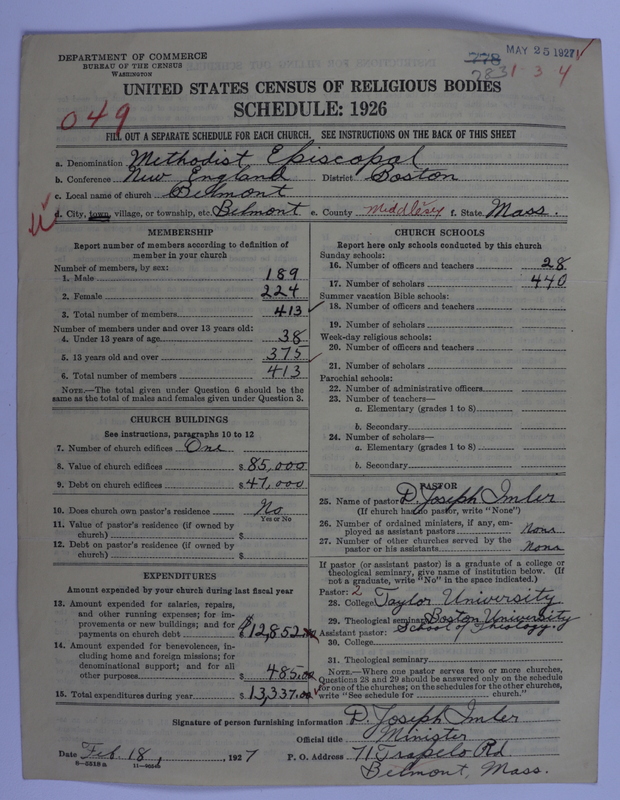 DEPARTMENT OF COMMERCE
BUREAU OF THE CENSUS
WASHINGTON
778 MAY 25 1927
2831-3 4
UNITED STATES CENSUS OF RELIGIOUS BODIES
SCHEDULE: 1926
049
FILL OUT A SEPARATE SCHEDULE FOR EACH CHURCH. SEE INSTRUCTIONS ON THE BACK OF THIS SHEET
a. Denomination Methodist Episcopal
b. Conference New England District Boston
c. Local name of church Belmont
d. City, town, village, or township, etc. Belmont e. County Middlesex f. State Mass.
MEMBERSHIP
Report number of members according to definition of
member in your church
Number of members, by sex:
1. Male 189
2. Female 224
3. Total number of members 413
Number of members under and over 13 years old:
4. Under 13 years of age 38
5. 13 years old and over 375
6. Total number of members 413
NOTE.—The total given under Question 6 should be
the same as the total of males and females given under Question 3.
CHURCH BUILDINGS
See instructions, paragraphs 10 to 12
7. Number of church edifices One
8. Value of church edifices $85,000
9. Debt on church edifices $47,000
10. Does church own pastor's residence No
Yes or No
11. Value of pastor's residence (if owned by
church) $
12. Debt on pastor's residence (if owned by
church) $
EXPENDITURES
Amount expended by your church during last fiscal year
13. Amount expended for salaries, repairs,
and other running expenses; for im-
provements or new buildings; and for
payments on church debt $12,852.00
14. Amount expended for benevolences, in-
cluding home and foreign missions; for
denominational support; and for all
other purposes 485.00
15. Total expenditures during year $13,337.00
CHURCH SCHOOLS
Report here only schools conducted by this church
Sunday schools:
16. Number of officers and teachers 28
17. Number of scholars 440
Summer vacation Bible schools:
18. Number of officers and teachers
19. Number of scholars
Week-day religious schools:
20. Number of officers and teachers
21. Number of scholars
Parochial schools:
22. Number of administrative officers
23. Number of teachers—
a. Elementary (grades 1 to 8)
b. Secondary
24. Number of scholars—
a. Elementary (grades 1 to 8)
b. Secondary
PASTOR
25. Name of pastor D. Joseph Imler
(If church has no pastor, write "None")
26. Number of ordained ministers, if any, em-
ployed as assistant pastors None
27. Number of other churches served by the
pastor or his assistants None
If pastor (or assistant pastor) is a graduate of a college or
theological seminary, give name of institution below. (If
not a graduate, write "No" in the space indicated.)
Pastor: 2
28. College Taylor University
29. Theological seminary Boston University
Assistant pastor: School of Theology
30. College
31. Theological seminary
NOTE.—Where one pastor serves two or more churches,
Questions 28 and 29 should be answered only on the schedule
for one of the churches; on the schedules for the other churches,
write "See schedule for church."
Signature of person furnishing information D. Joseph Imler
Official title Minister
Date Feb. 18, 1927 P. O. Address 71 Trapelo Rd
Belmont, Mass.